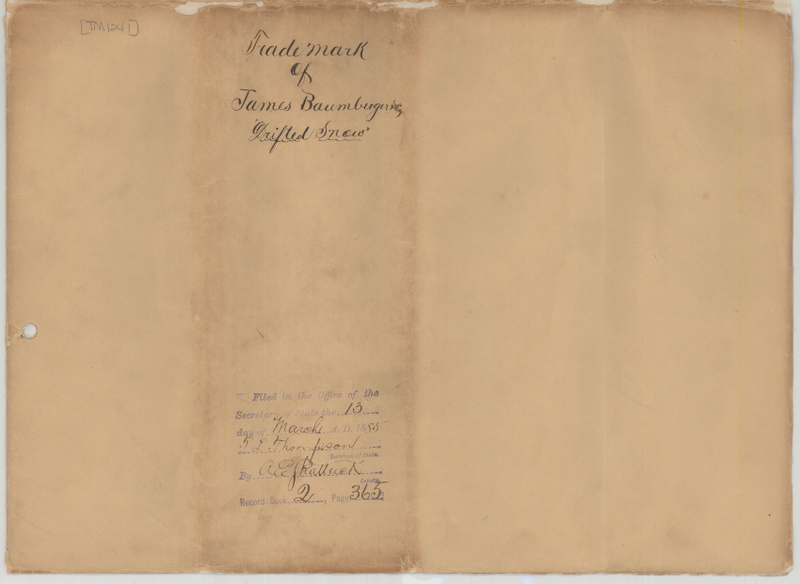 [TM1241]
Trademark
of
James Baumbugering
"Drifted Snow"
Filed in the Office of the
Secretary of State the 13
day of March A.D. 1885
T. L. Thompson
Secretary of State.
By A E Shattuck
Deputy
Record Book, 2, Page 365